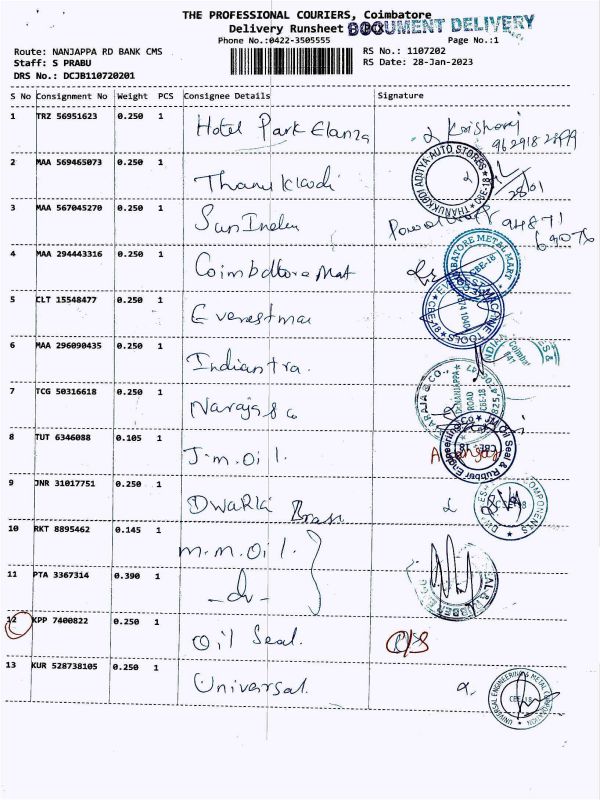 THE PROFESSIONAL COURIERS, Coimbatore
Delivery Runsheet DOCUMENT DELIVERY
Phone No.:0422-3505555 Page No.:1
Route: NANJAPPA RD BANK CMS RS No.: 1107202
Staff: S PRABU RS Date: 28-Jan-2023
DRS No.: DCJB110720201
S No Consignment No Weight PCS Consignee Details Signature
1 TRZ 56951623 0.250 1 Hotel Park Elanza
2 MAA 569465073 0.250 1 Thanukkodi THANUKKODI ADITYA AUTO STORES CBE-18 28/01
3 MAA 567045270 0.250 1 Sun Inden 94871
69076
4 MAA 294443316 0.250 1 Coimbatore Mat COIMBATORE METAL MART CBE-18
5 CLT 15548477 0.250 1 Everestmac
6 MAA 296090435 0.250 1 Indiantra.
7 TCG 50316618 0.250 1 Naraja & co
8 TUT 6346088 0.105 1 J.m.oil. JM Oil Seal & Rubber Engineering Co CBE-18
9 JNR 31017751 0.250 1 Dwarka Brass
10 RKT 8895462 0.145 1 m.m.oil.
11 PTA 3367314 0.390 1 -do-
12 KPP 7400822 0.250 1 oil Seal. O/S
13 KUR 528738105 0.250 1 Universal. UNIVERSAL ENGINEERING & METAL CORPORATION CBE-18